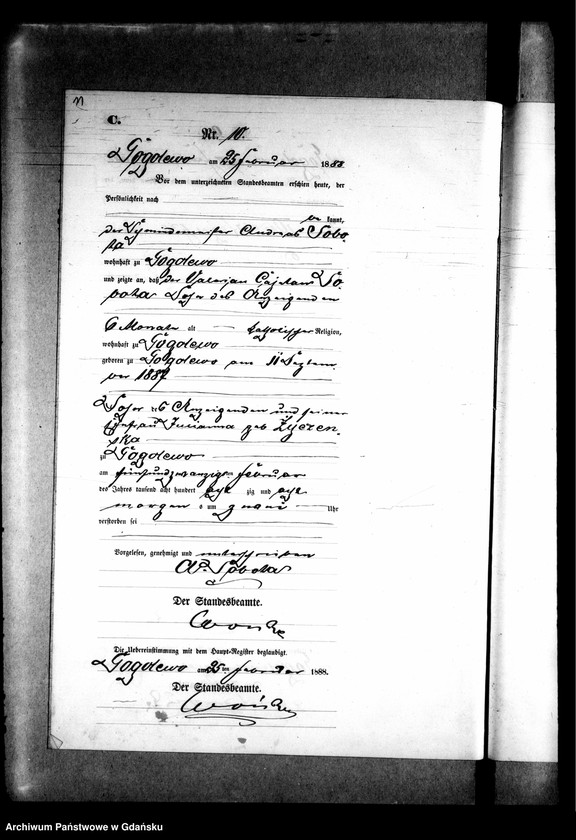 C.
Nr. 10.
Gogolewo am 25 Februar 1888
Vor dem unterzeichneten Standesbeamten erschien heute, der
Persönlichkeit nach
be kannt,
Andreas Sobo-
ta
wohnhaft zu Gogolewo
und zeigte an, daß der Valerian Cajetan So-
bota Sohn des Anzeigenden
6 Monate alt katholischer Religion,
wohnhaft zu Gogolewo
geboren zu Gogolewo am 11 Septem-
ber 1887
Sohn des Anzeigenden und seiner
Ehefrau Julianna geb
ska
zu Gogolewo
am fünfundzwanzigsten Februar
des Jahres tausend acht hundert acht zig und acht
morgen s um zwei Uhr
verstorben sei
Vorgelesen, genehmigt und unterschrieben
A. Sobota
Der Standesbeamte.
Die Uebereinstimmung mit dem Haupt-Register beglaubigt.
Gogolewo am 25ten Februar 1888.
Der Standesbeamte.
Archiwum Państwowe w Gdańsku